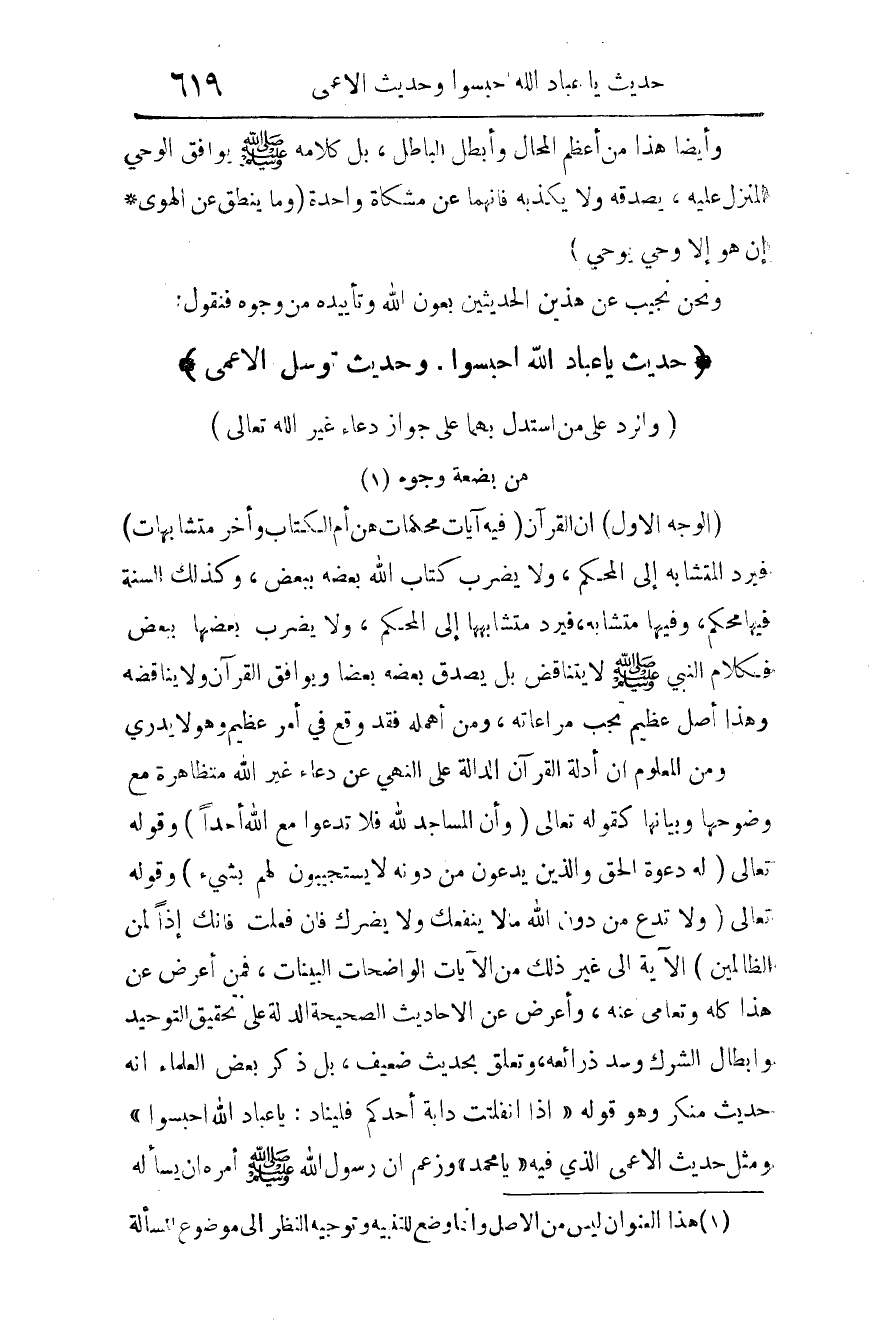 حديث يا عباد الله احبسوا وحديث الاعمى ٦١٩
وأيضا هذا من أعظم المحال وأبطل الباطل ، بل كلامه ﷺ يوافق الوحي
المنزل عليه ، يصدقه ولا يكذبه فانهما عن مشكاة واحدة (وما ينطق عن الهوى*
إن هو إلا وحي يوحي )
ونحن نجيب عن هذين الحديثين بعون الله وتأييده من وجوه فنقول:
﴿ حديث ياعباد الله احبسوا . وحديث توسل الاعمى ﴾
( والرد على من استدل بهما على جواز دعاء غير الله تعالى )
من بضعة وجوه (١)
(الوجه الاول) ان القرآن ( فيه آيات محكمات هن أم الكتاب وأخر متشابهات)
فيرد المتشابه إلى المحكم ، ولا يضرب كتاب الله بعضه ببعض ، وكذلك السنة
فيها محكم، وفيها متشابه، فيرد متشابهها إلى المحكم ، ولا يضرب بعضها ببعض
فكلام النبي ﷺ لا يتناقض بل يصدق بعضه بعضا ويوافق القرآن ولا يناقضه
وهذا أصل عظيم تجب مراعاته ، ومن أهمله فقد وقع في أمر عظيم وهو لا يدري
ومن المعلوم ان أدلة القرآن الدالة على النهي عن دعاء غير الله متظاهرة مع
وضوحها وبيانها كقوله تعالى ( وأن المساجد لله فلا تدعوا مع الله أحداً ) وقوله
تعالى ( له دعوة الحق والذين يدعون من دونه لايستجيبون لهم بشيء ) وقوله
تعالى ( ولا تدع من دون الله مالا ينفعك ولا يضرك فان فعلت فانك إذاً لمن
الظالمين ) الآية الى غير ذلك من الآيات الواضحات البينات ، فمن أعرض عن
هذا كله وتعامى عنه ، وأعرض عن الاحاديث الصحيحة الدالة على تحقيق التوحيد
وابطال الشرك وسد ذرائعه، وتعلق بحديث ضعيف ، بل ذكر بعض العلماء انه
حديث منكر وهو قوله « اذا انفلتت دابة أحدكم فليناد : ياعباد الله احبسوا »
ومثل حديث الاعمى الذي فيه « يامحمد » وزعم ان رسول الله ﷺ أمره ان يسأله
(١) هذا العنوان ليس من الاصل وانما وضع للتنبيه وتوجيه النظر الى موضوع المسألة